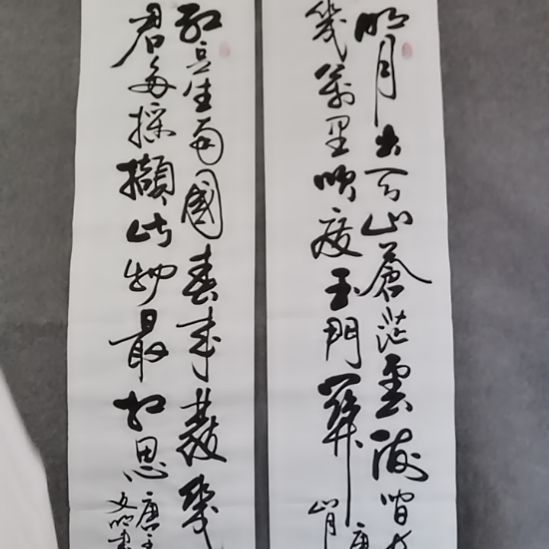 明月出天山蒼茫雲海間長
幾萬里吹度玉門關
紅豆生南國春來發幾
君多採擷此物最相思
唐